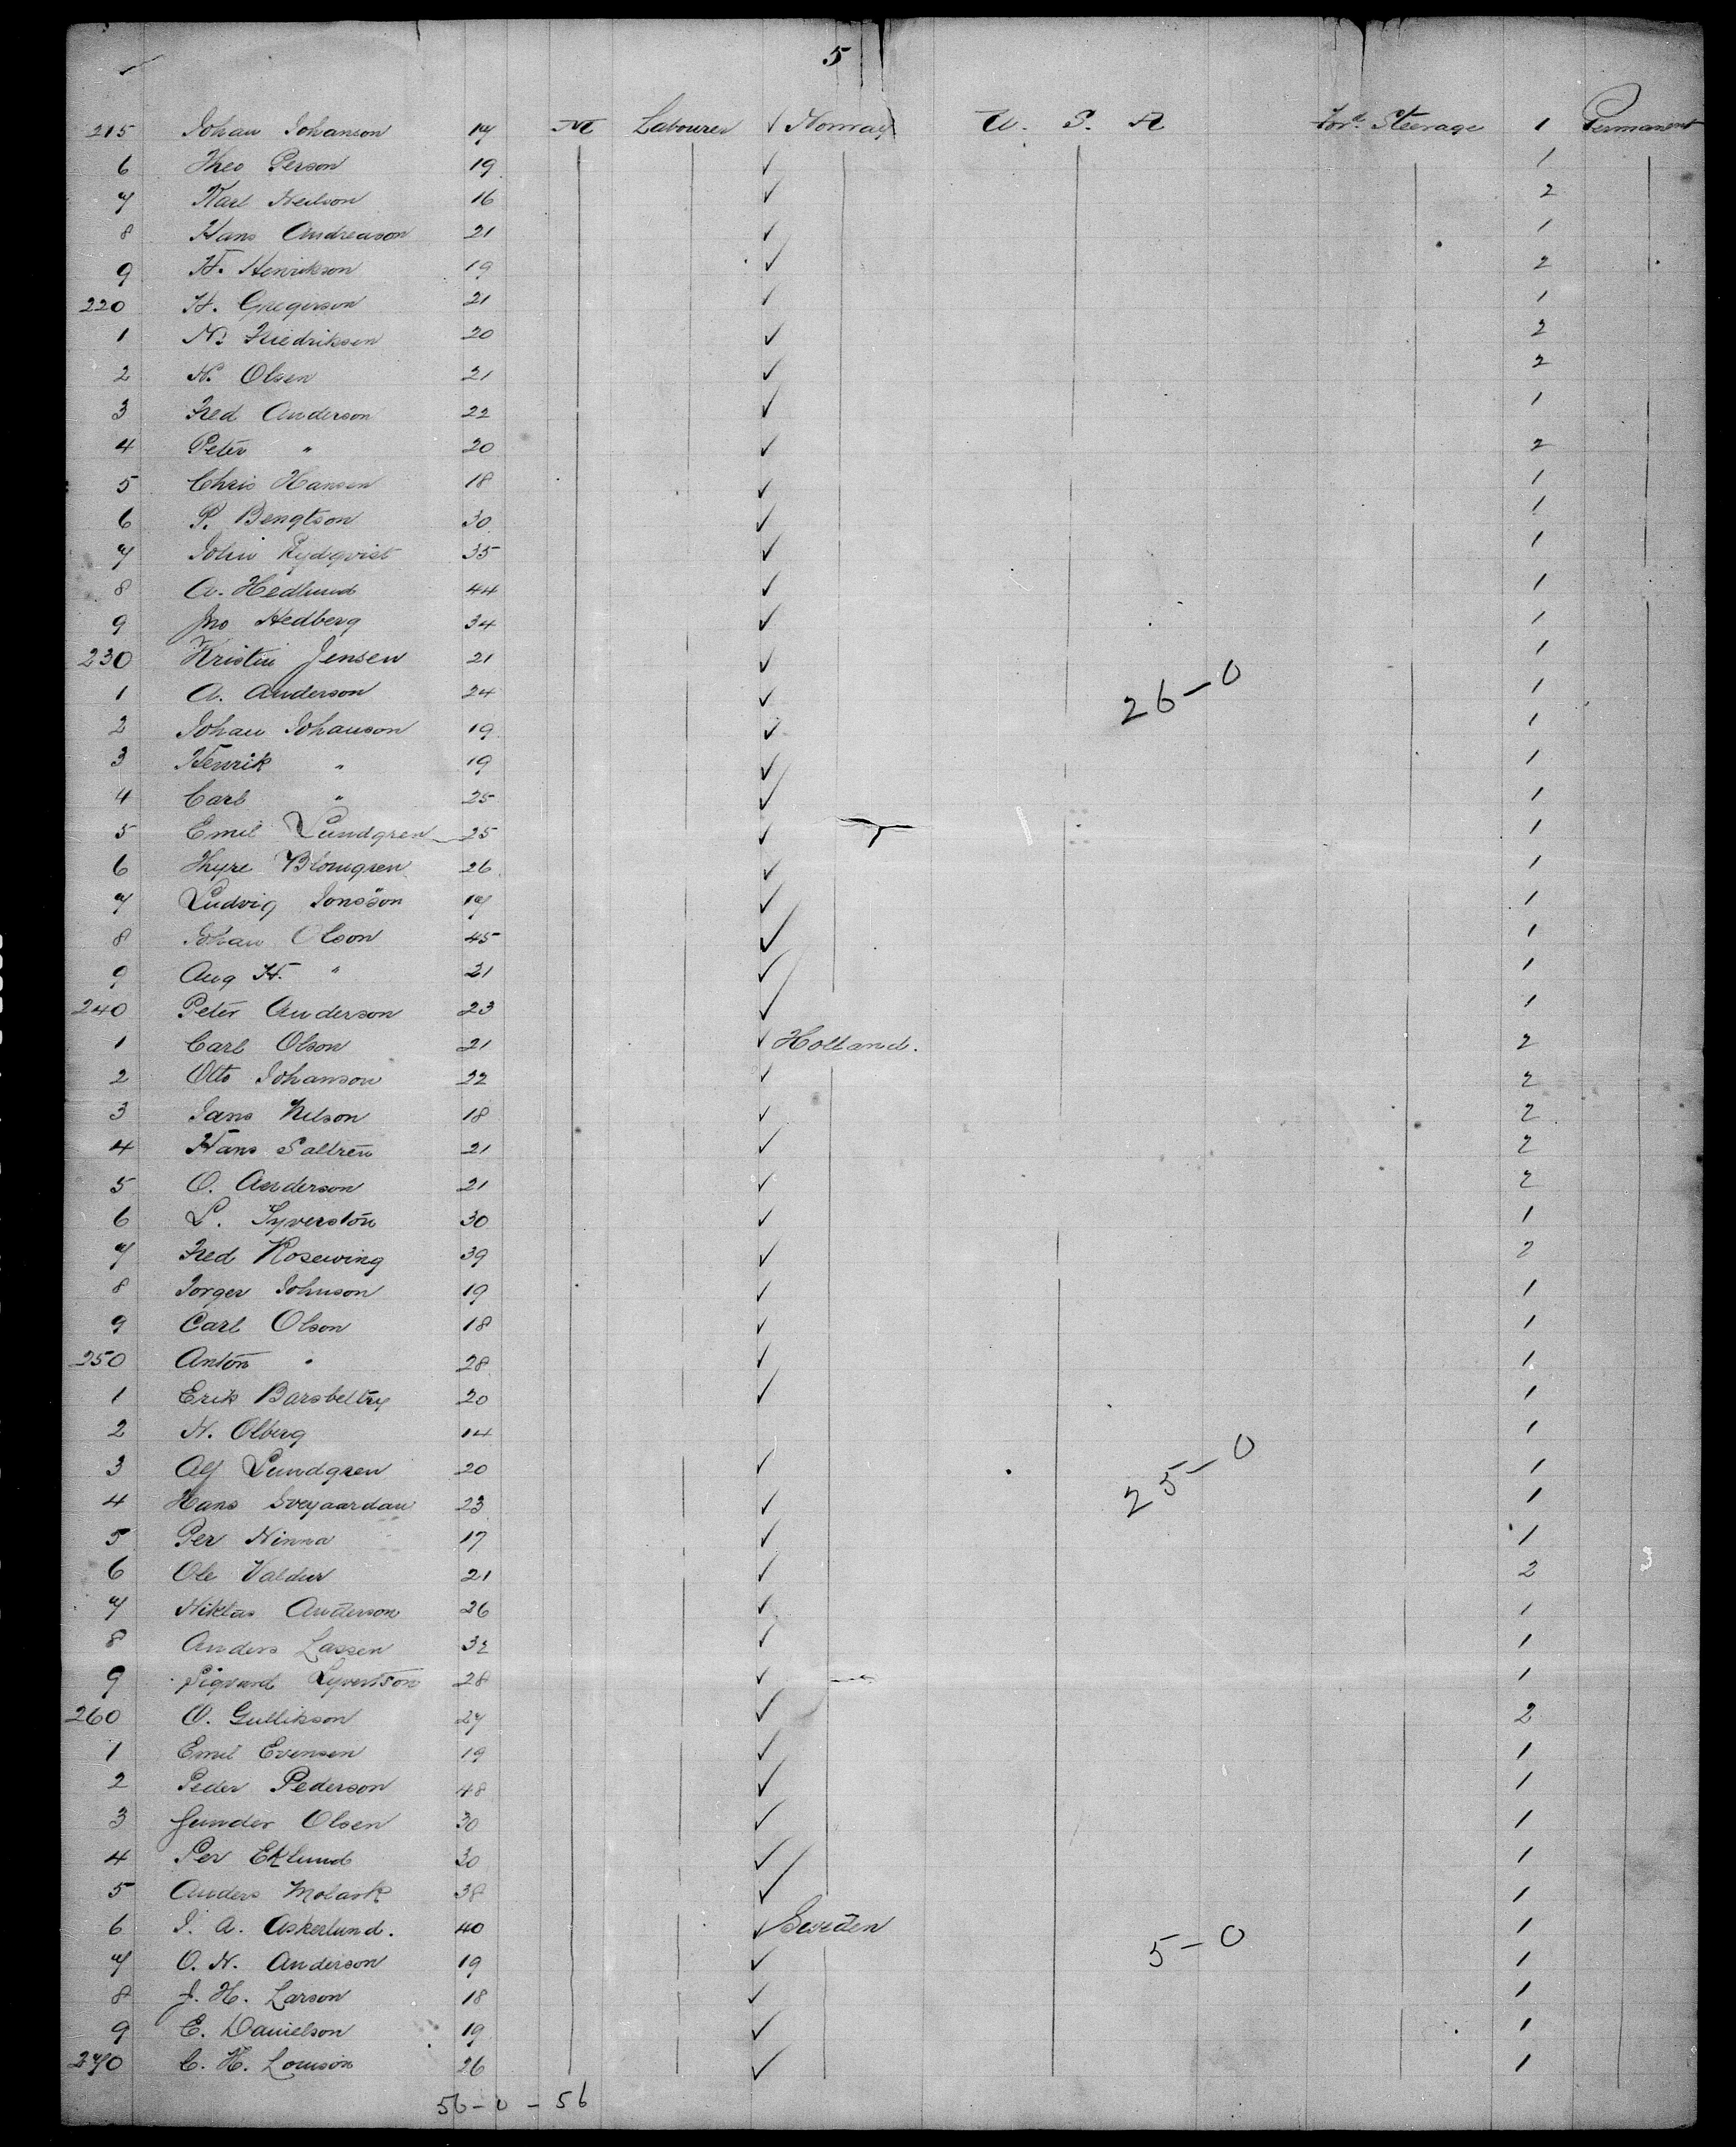 5
215 Johan Johanson 17 M Labourer ✓ Norway U. S. A For'd Steerage 1 Permanent
6 Theo Person 19 ✓ 1
7 Karl Neilson 16 ✓ 2
8 Hans Andreason 21 ✓ 1
9 H. Henrikson 19 ✓ 2
220 H. Gregerson 21 ✓ 1
1 N. Friedriksen 20 ✓ 2
2 N. Olsen 21 ✓ 2
3 Fred Anderson 22 ✓ 1
4 Peter " 20 ✓ 2
5 Chris Hansen 18 ✓ 1
6 P. Bengtson 30 ✓ 1
7 John Rydqvist 35 ✓ 1
8 A. Hedlund 44 ✓ 1
9 Jno Hedberg 34 ✓ 1
230 Kristin Jensen 21 ✓ 1
1 A. Anderson 24 ✓ 26-0 1
2 Johan Johanson 19 ✓ 1
3 Henrik " 19 ✓ 1
4 Carl " 25 ✓ 1
5 Emil Lundgren 25 ✓ 1
6 Thyre Blomgren 26 ✓ 1
7 Ludvig Jonsson 17 ✓ 1
8 Johan Olson 45 ✓ 1
9 Aug H. " 21 ✓ 1
240 Peter Anderson 23 ✓ 1
1 Carl Olson 21 ✓ Holland. 2
2 Otto Johanson 22 ✓ 2
3 Jans Nelson 18 ✓ 2
4 Hans Saltren 21 ✓ 2
5 O. Anderson 21 ✓ 2
6 L. Syverston 30 ✓ 1
7 Fred Rosewing 39 ✓ 2
8 Jorger Johnson 19 ✓ 1
9 Carl Olson 18 ✓ 1
250 Anton " 28 ✓ 1
1 Erik Barsbeltry 20 ✓ 1
2 N. Olberg 14 1
3 Alf Lundgren 20 ✓ 25-0 1
4 Hans 23 ✓ 1
5 Per Ninna 17 ✓ 1
6 Ole Valdur 21 ✓ 2 3
7 Niklas Anderson 26 ✓ 1
8 Anders Lassen 32 ✓ 1
9 Sigvard Syvertson 28 ✓ 1
260 O. Gullikson 27 ✓ 2
1 Emil Evensen 19 ✓ 1
2 Peder Pederson 48 ✓ 1
3 Gunder Olsen 30 ✓ 1
4 Per Eklund 30 ✓ 1
5 Anders Molask 38 ✓ 1
6 J. A. Askerlund. 40 ✓ Sweden 1
7 O. N. Anderson 19 ✓ 5-0 1
8 J. H. Larson 18 ✓ 1
9 E. Danielson 19 ✓ 1
270 C. H. Lomson 26 ✓ 1
56-0-56